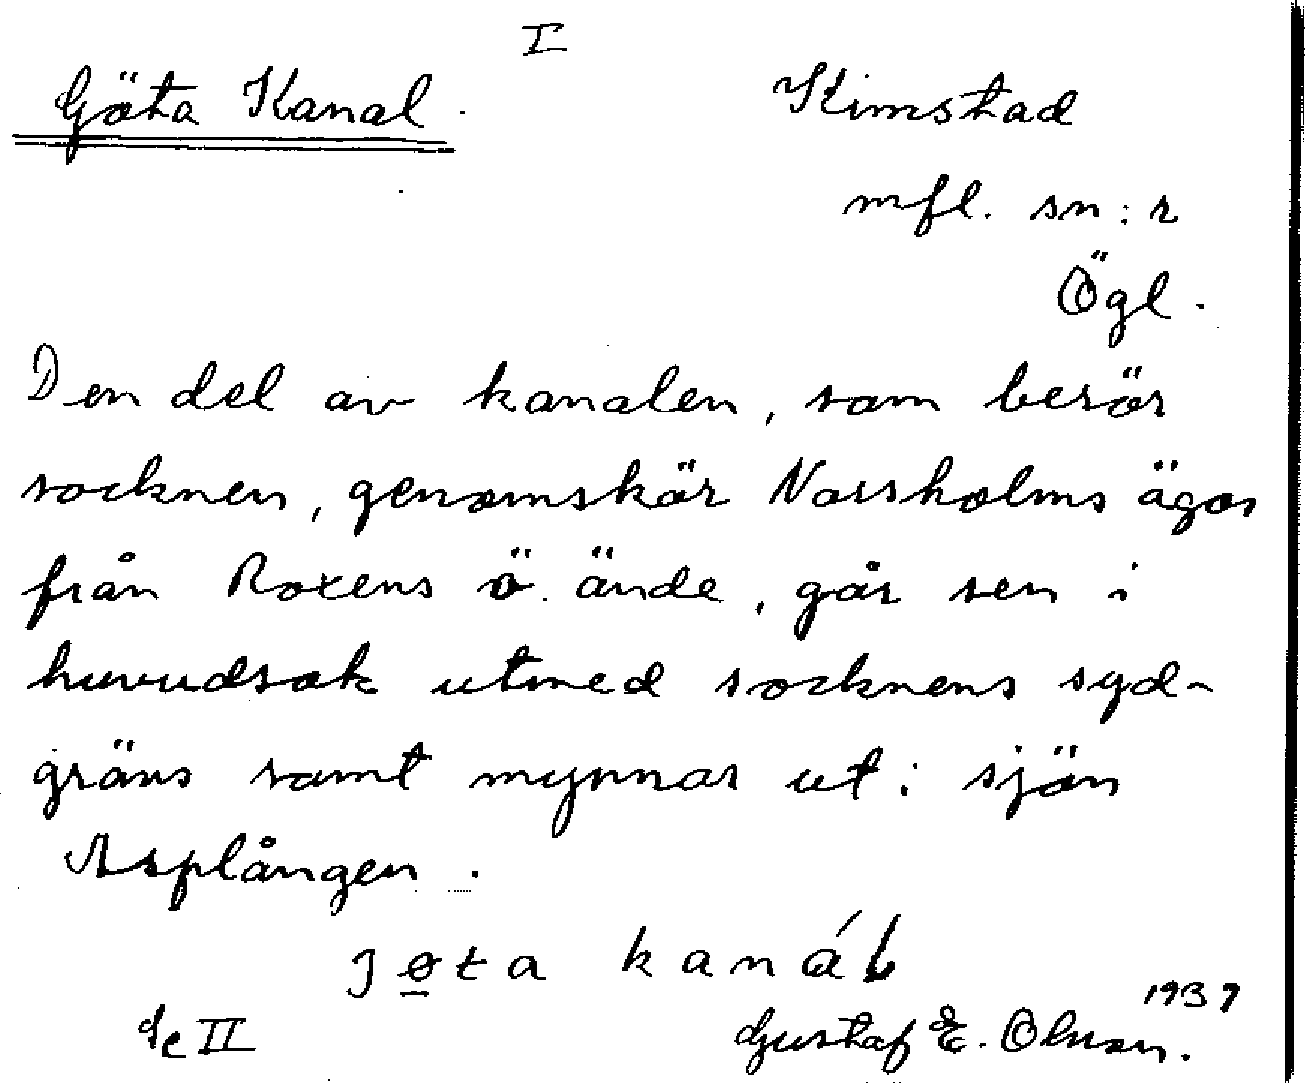 I
Göta Kanal.
Kimstad
mfl. sn:r
Ögl.
Den del av kanalen, som berör
socknen, genomskär Norsholms ägor
från Roxens ö. ände, går sen i
huvudsak utmed socknens syd-
gräns samt mynnar ut i sjön
Asplången.
jøta kanáL
Se II
1937
Gustaf E. Olsson.